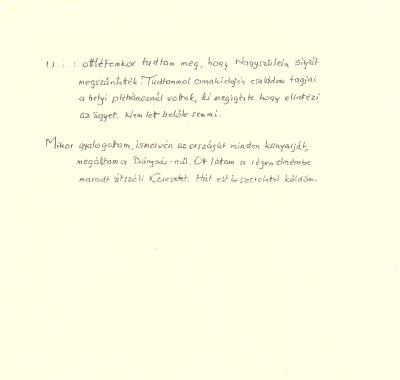 U.i.: ottlétemkor tudtam meg, hogy Nagyszüleim sírját
megszüntették! Tudtommal annakidején családom tagjai
a helyi plébánosnál voltak, ki megígérte hogy elintézi
az ügyet. Nem lett belőle semmi.
Mikor gyalogoltam, ismervén az országút minden kanyarját,
megálltam a -nál. Ott láttam a régen elmémbe
maradt útszéli Keresztet. Hát ezt is szeretettel küldöm.